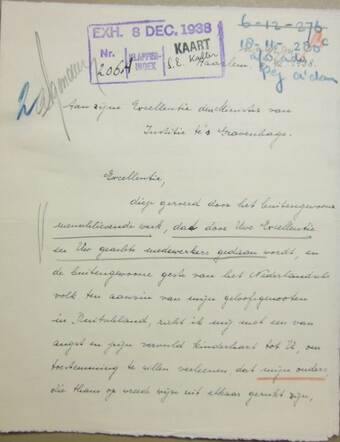 EXH. 8 DEC. 1938
Nr. 206H
KLAPPER-INDEX
KAART
S.E. Keller
6-12-276
18-11-
Haarlem
1938.
Aan zijne Excellentie den Minister van
Justitie te 's Gravenhage.
Excellentie,
diep geroerd door het buitengewone
menschlievende werk, dat door Uwe Excellentie
en Uw geachte medewerkers gedaan wordt, en
de buitengewone geste van het Nederlandsche
volk ten aanzien van mijne geloofsgenooten
in Deutschland, richt ik mij met een van
angst en pijn vervuld kinderhart tot U, om
toestemming te willen verleenen, dat mijne ouders,
die thans op wreede wijze uit elkaar gerukt zijn,